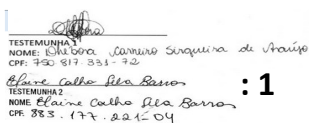 Debora
TESTEMUNHA 1
NOME: Debora Carneiro Sirqueira de Araújo
CPF: 750 817.331-72
Elaine Coelho Sila Barros
: 1
TESTEMUNHA 2
NOME Elaine Coelho Sila Barros
CPF: 883.177.221-04